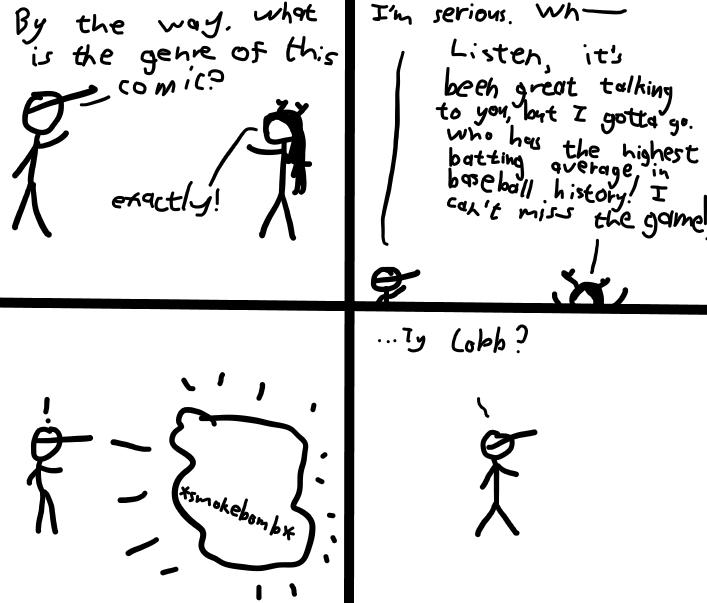 By the way. what
is the genre of this
comic?
exactly!
I'm serious. Wh—
Listen, it's
been great talking
to you, but I gotta go.
who has the highest
batting average in
baseball history! I
can't miss the game!
!
*smokebomb*
...Ty Cobb?